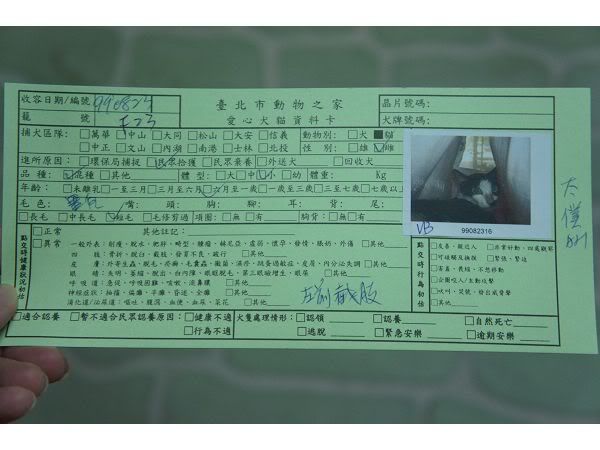 收容日期/編號 990824 臺北市動物之家 晶片號碼:
籠號 F23 愛心犬貓資料卡 犬牌號碼:
捕犬區隊: □萬華 □中山 □大同 □松山 □大安 □信義 動物別: □犬 ■貓
□中正 □文山 □內湖 □南港 □士林 □北投 性別: □雄 ☑雌
進所原因: □環保局捕捉 ☑民眾拾獲 □民眾棄養 □外送犬 □回收犬
品種: ☑混種 □其他 體型: □大 □中 ☑小 體重: Kg
年齡: □未離乳 □一至三月 □三月至六月 ☑六月至一歲 □一歲至三歲 □三至七歲 □七歲以上
毛色: 嘴: 頭: 胸: 腳: 耳: 背: 尾:
□長毛 □中長毛 ☑短毛 □毛修剪過 項圈: □無 □有 胸背: □無 □有
VB 99082316
點交時健康狀況初估
□正常 其他註記:
□異常 一般外表: 削瘦、脫水、肥胖、畸型、腫瘤、赫尼亞、虛弱、懷孕、發情、脹奶、外傷 □其他
四肢: 骨折、脫白、截肢、發育不良、跛行 □其他
皮膚: 外寄生蟲、脫毛、疥癬、毛囊蟲、黴菌、潰瘍、跳蚤過敏症、皮屑、內分泌失調 □其他
眼睛: 失明、萎縮、脫出、白內障、眼瞼脫毛、第三眼瞼增生、眼屎 □其他
呼吸道: 急促、呼吸困難、咳嗽、流鼻膿 □其他
神經症狀: 抽搐、偏癱、半癱、昏迷、全癱 □其他
消化道/泌尿道: 嘔吐、腹瀉、血便、血尿、菜花 □其他
左前截肢
點交時行為初估
□友善、親近人 □非常好動、四處觀察
□可碰觸及抱撫 □緊張、警追
□害羞、畏縮、不想移動
□企圖咬人/主動攻擊
□吠叫、哭號、發出威脅聲
□其他
□適合認養 □暫不適合民眾認養原因: □健康不適 犬隻處理情形: □認領 □認養 □自然死亡
□行為不適 □逃脫 □緊急安樂 □逾期安樂